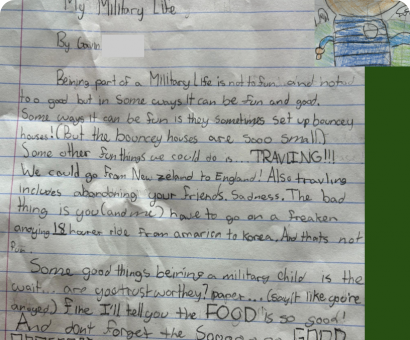 My Military Life
By Gavin
Beining part of a Military Life is not to fun. and not
too good but in some ways It can be fun and good.
Some ways it can be fun is they sometimes set up bouncey
houses! (But the bouncey houses are sooo small.)
Some other fun things we could do is... TRAVLING!!!
We could go from New zeland to England! Also travling
includes abandoning your friends. Sadness. The bad
thing is you (and me) have to go on a freaken
anoying 18 houer ride from amarica to Korea. And thats not
fun.
Some good things beining a military child is the
wait... are you trustworthy? paper... (say it like you're
anoyed) fine I'll tell you the FOOD is so good!
And dont forget the FOOD